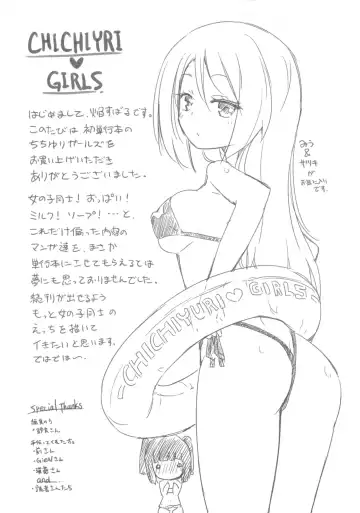 CHICHIYRI
♥
GIRLS
はじめまして、帰すばるです。
このたびは初単行本の
ちちゆりガールズを
お買い上げいただき
ありがとうございました。
女の子同士！おっぱい！
ミルク！ソープ！…と、
これだけ偏った内容の
マンガ達を、まさか
単行本にさせてもらえるとは
夢にも思っておりませんでした。
続刊が出せるよう
もっと女の子同士の
えっちを描いて
イきたいと思います。
ではでは〜。
みう
&
サツキ
が
お気に入り
です。
CHICHIYURI♡GIRLS
Special Thanks
手伝ってくれた方。
and
・読者さんたち